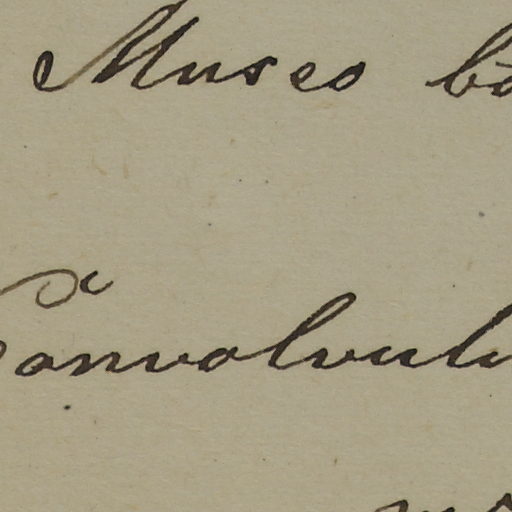 Museo bo
Convolvulu